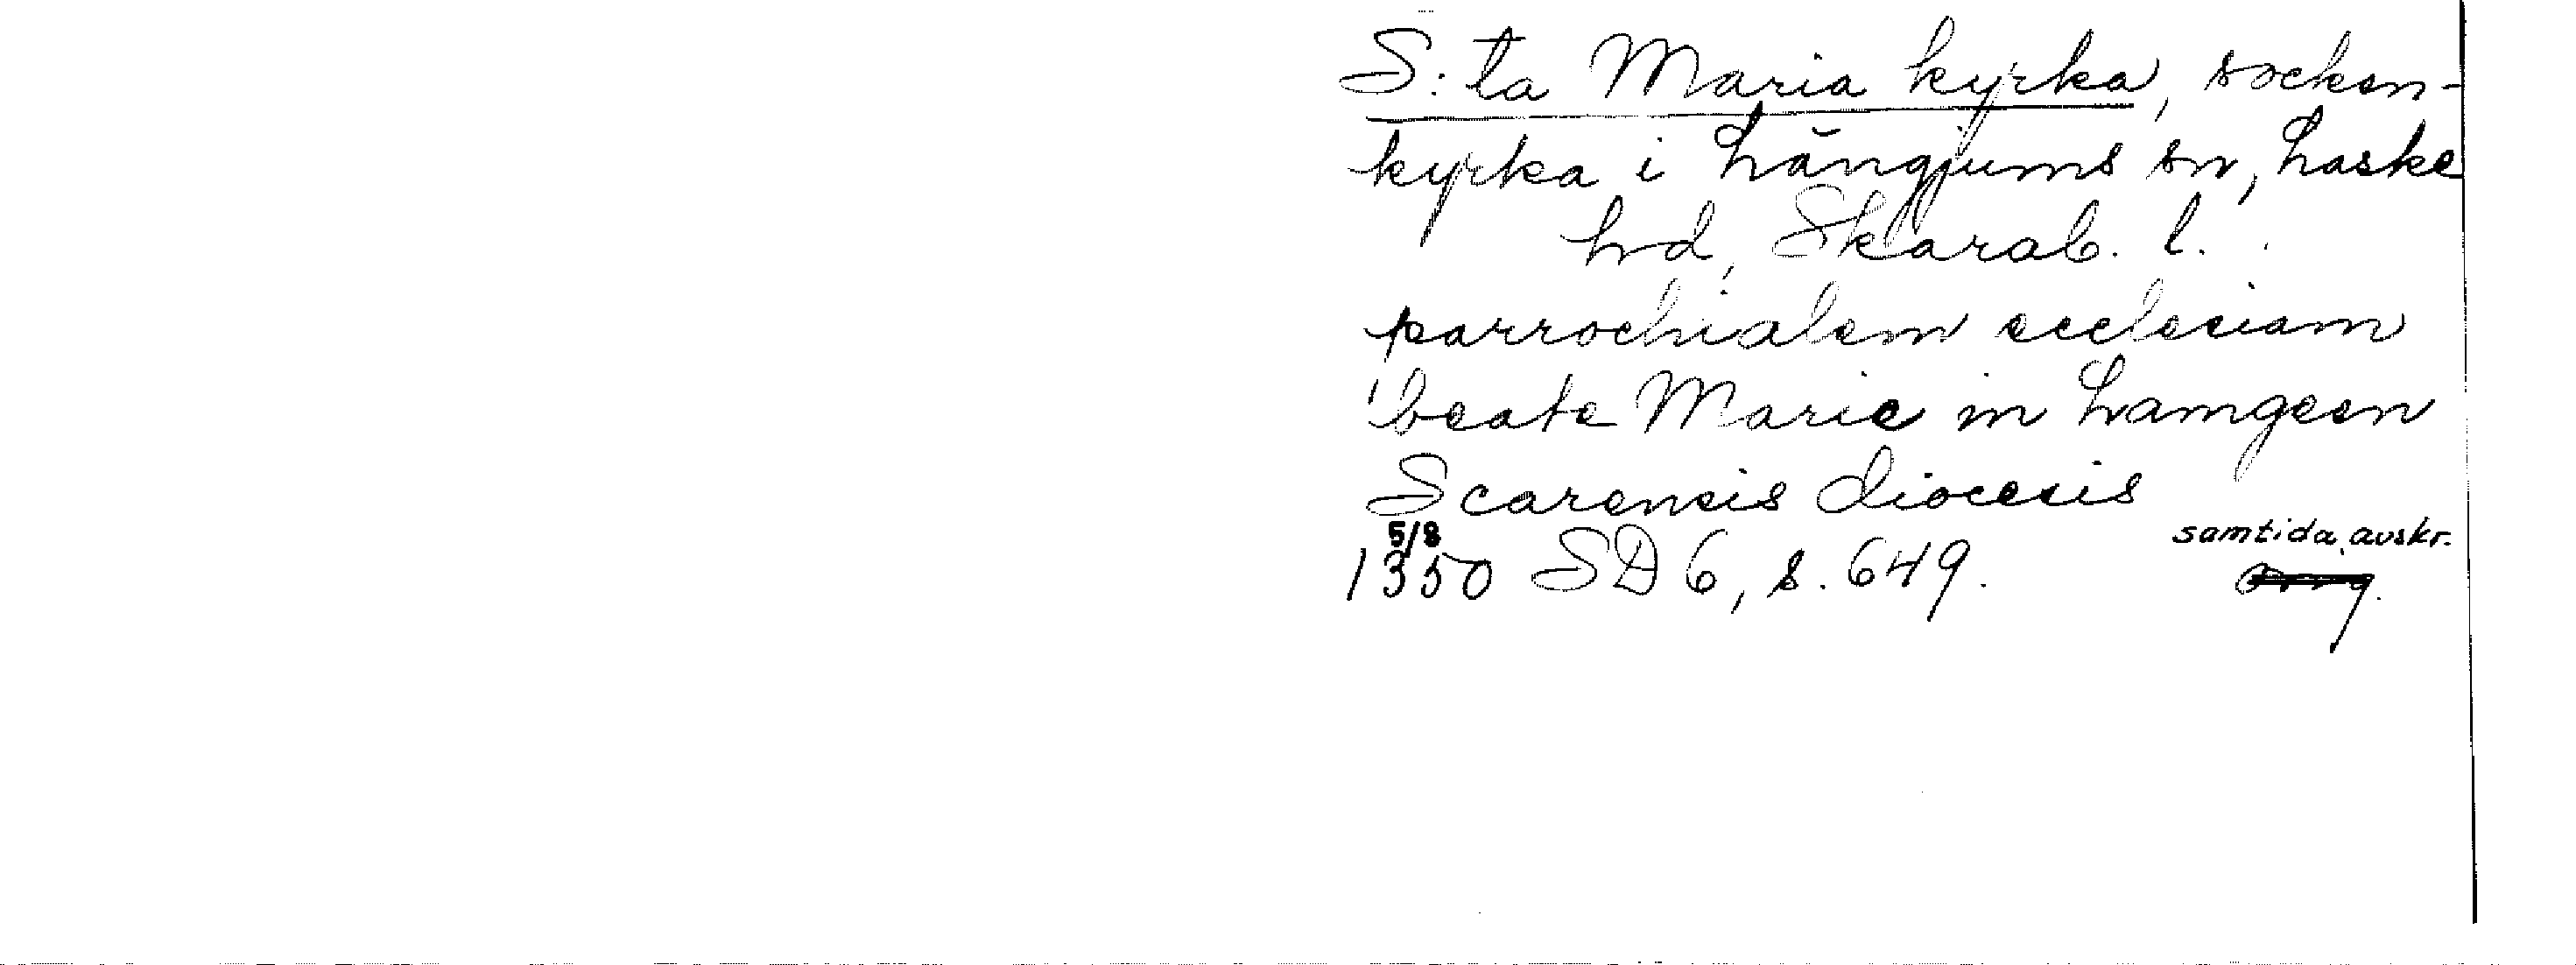 S:ta Maria kyrka, socken-
kyrka i Längjums sn, Laske
hd, Skarab. l.
parrochialem ecclesiam
beate Marie in Lamgeen
Scarensis diocesis
5/8 samtida avskr.
1350 SD 6, s. 649.